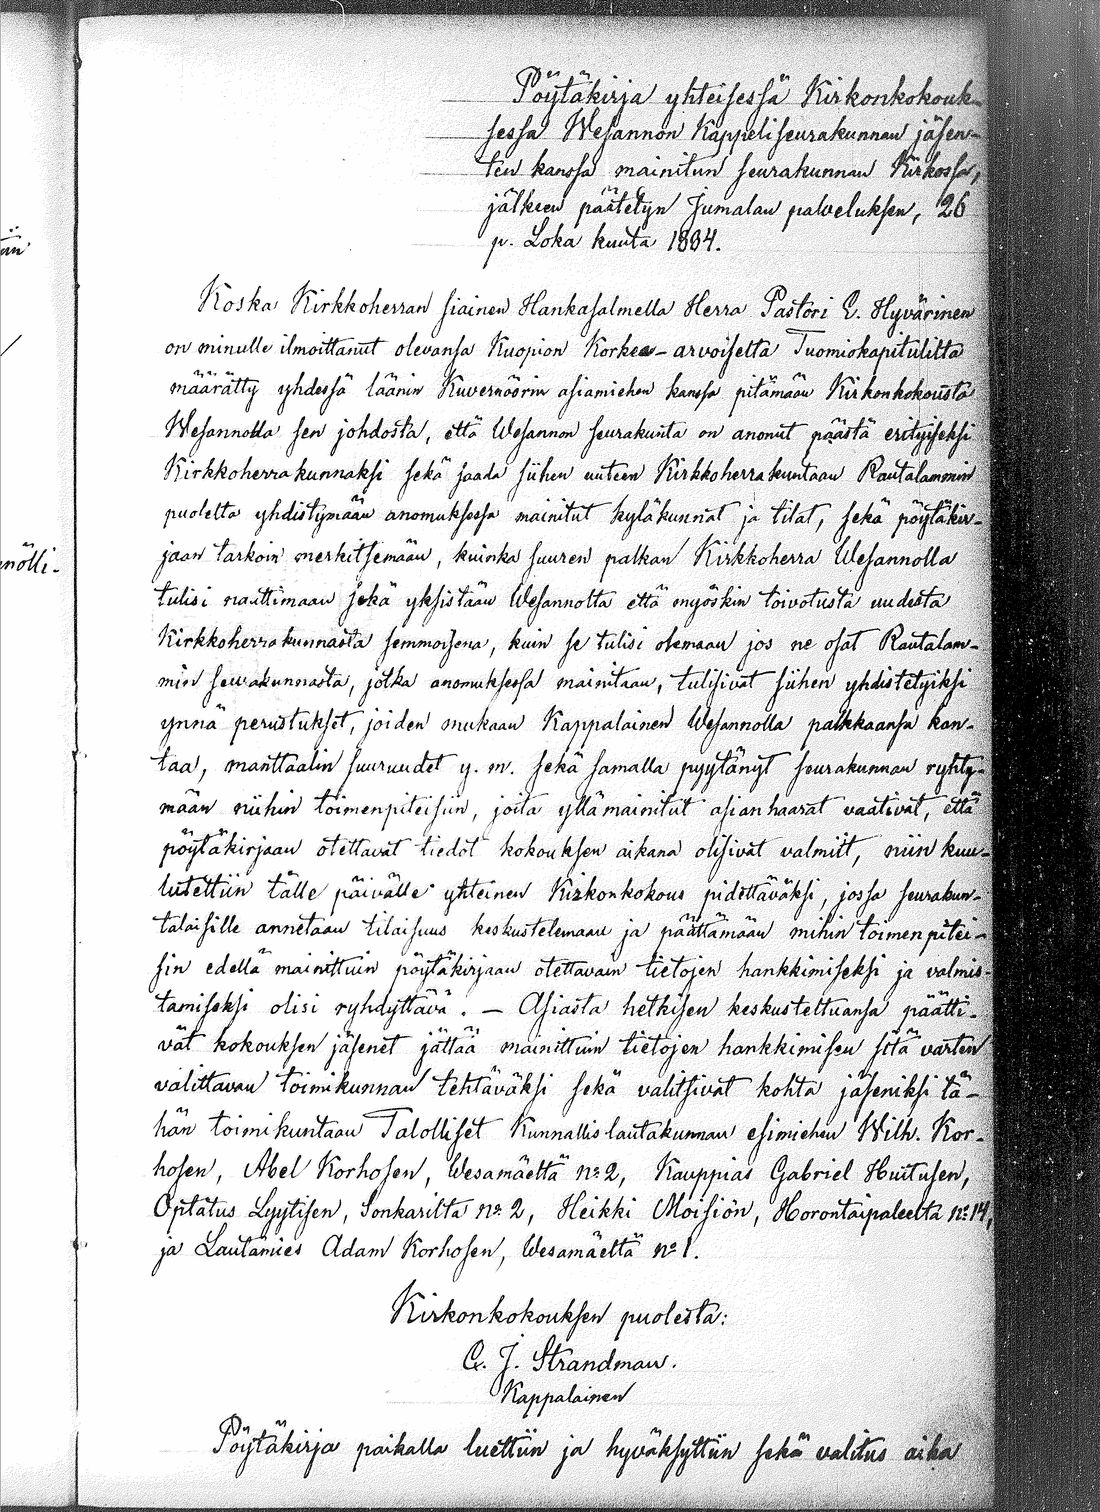 Pöytäkirja yhteisessä Kirkonkokouk-
sessa Wesannon Kappeliseurakunnan jäsen-
ten kanssa mainitun seurakunnan Kirkossa,
jälkeen päätetyn Jumalan palveluksen, 26
p. Loka kuuta 1884.
Koska Kirkkoherran siainen Hankasalmella Herra Pastori E. Hyvärinen
on minulle ilmoittanut olevansa Kuopion Korkea-arvoiselta Tuomiokapitulilta
määrätty yhdessä läänin Kuvernöörin asiamiehen kanssa pitämään Kirkonkokousta
Wesannolla sen johdosta, että Wesannon seurakunta on anonut päästä erityiseksi
Kirkkoherrakunnaksi sekä saada siihen uuteen Kirkkoherrakuntaan Rautalammin
puolelta yhdistymään anomuksessa mainitut kyläkunnat ja tilat, sekä pöytäkir-
jaan tarkoin merkitsemään, kuinka suuren palkan Kirkkoherra Wesannolla
tulisi nauttimaan sekä yksistään Wesannolta että myöskin toivotusta uudesta
Kirkkoherrakunnasta semmoisena, kuin se tulisi olemaan jos ne osat Rautalam-
min seurakunnasta, jotka anomuksessa mainitaan, tulisivat siihen yhdistetyiksi
ynnä perustukset, joiden mukaan Kappalainen Wesannolla palkkaansa kan-
taa, manttaalin suuruudet y. m. sekä samalla pyytänyt seurakunnan ryhty-
mään niihin toimenpiteisiin, joita yllämainitut asianhaarat vaativat, että
pöytäkirjaan otettavat tiedot kokouksen aikana olisivat valmiit, niin kuu-
lutettiin tälle päivälle yhteinen Kirkonkokous pidettäväksi, jossa seurakun-
talaisille annetaan tilaisuus keskustelemaan ja päättämään mihin toimenpitei-
sin edellä mainittuin pöytäkirjaan otettavain tietojen hankkimiseksi ja valmis-
tamiseksi olisi ryhdyttävä. – Asiasta hetkisen keskusteltuansa päätti-
vät kokouksen jäsenet jättää mainittuin tietojen hankkimisen sitä varten
valittavan toimikunnan tehtäväksi sekä valitsivat kohta jäseniksi tä-
hän toimikuntaan Talolliset Kunnallislautakunnan esimiehen Wilh. Kor-
hosen, Abel Korhosen, Wesamäeltä No 2, Kauppias Gabriel Huitusen,
Optatus Lyytisen, Sonkarilta No 2, Heikki Moision, Horontaipaleelta No 14,
ja Lautamies Adam Korhosen, Wesamäeltä No 1.
Kirkonkokouksen puolesta:
C. J. Strandman.
Kappalainen
Pöytäkirja paikalla luettiin ja hyväksyttiin sekä valitus aika